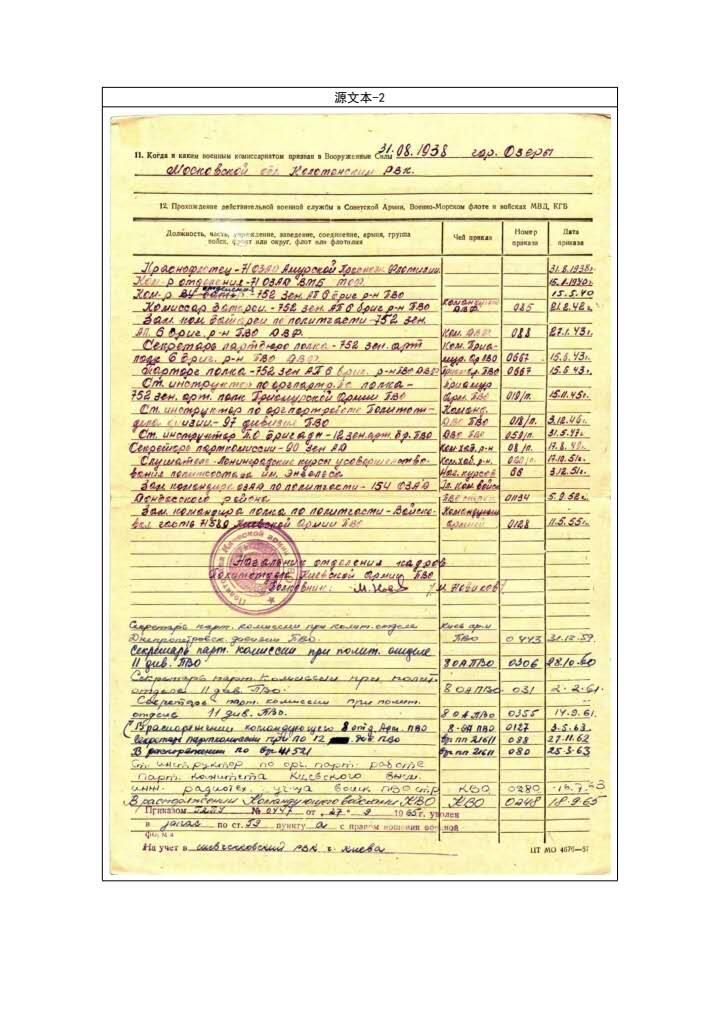 源文本-2
11. Когда и каким военным комиссариатом призван в Вооруженные Силы 31.08.1938 гор. Озеры
Московской обл. РВК.
12. Прохождение действительной военной службы в Советской Армии, Военно-Морском флоте и войсках МВД, КГБ
Должность, часть, учреждение, заведение, соединение, армия, группа войск, фронт или округ, флот или флотилия Чей приказ Номер приказа Дата приказа
Краснофлотец - 71 ОЗАД Амурской Краснозн. Флотилии 31.8.1938г.
Ком-р отделения - 71 ОЗАД ТОФ. 15.1.1940г.
Ком-р отделения - 752 зен. АП 6 бриг. р-н ПВО 15.5.40
Комиссар батареи - 752 зен. АП 6 бриг р-н ПВО Командующ ДВФ 085 21.2.42г.
Зам. ком батареи по политчасти - 752 зен.
АП. 6 бриг. р-н ПВО ДВФ. Ком. ДВФ. 088 27.1.43г.
Секретарь партбюро полка - 752 зен. арт Ком. Приа-
полк 6 бриг. р-н ПВО ДВФ. мур. ПВО 0667 15.6.43г.
Парторг полка - 752 зен АП 6 бриг. р-н ПВО ДВФ ПВО 0667 15.6.43г.
Ст. инструктор по орг. полка - Приамур
752 зен. арт. полк Приамурской Армии ПВО Арм. ПВО 019/п. 15.11.45г.
Ст. инструктор по орг партработе Политот- Команд.
дела дивизии - 97 дивизия ПВО ДВО ПВО 018/п. 3.12.46г.
Ст. инструктор П.О бригады - 12 зен. арт. бр. ПВО ДВО ПВО 058/п. 31.5.47г.
Секретарь парткомиссии - 90 зен АД Ком. хаб. р-н 08/п. 17.8.49г.
Слушатель Ленинградские курсы усовершенство- Ком. хаб. р-н 17.10.51г.
вания политсостава им. Энгельса Нач. курсов 66 3.12.51г.
Зам. командира ОЗАД по политчасти - 154 ОЗАД
Донбасского района 01134 5.9.52г.
Зам. командира полка по политчасти - Войско- Командующ
вая часть 71580 Киевской Армии ПВО армией 0128 11.5.55г.
Начальник отделения кадров
Политотдела Киевской армии ПВО
Полковник: /М. Новиков/
Секретарь парт. комиссии при полит. отделе Киев арм
Днепропетровск. дивизии ПВО. ПВО 0443 31.12.59.
Секретарь парт. комиссии при полит. отделе
11 див. ПВО 8 ОАПВО 0306 28.10.60
Секретарь парт. комиссии при полит.
отделе 11 див. ПВО. 8 ОАПВО 031 2.2.61.
Секретарь парт. комиссии при полит.
отделе 11 див. ПВО. 8 ОАПВО 0355 14.9.61.
В распоряжении командующего 8 отд. Арм. ПВО 8-ОА ПВО 0127 3.5.63
Секретарь парткомиссии при ПО 12 див ПВО вч пп 21611 098 27.11.62
В распоряжении ПО вч 41521 вч пп 21611 080 25.3.63
Ст. инструктор по орг. парт. работе
парт. комитета Киевского выс.
инж. радиотех. уч-ща войск ПВО стр. КВО 0280 13.7.63
В распоряжении Командующего войсками КВО КВО 0248 18.9.65
Приказом № 0447 от „27“ 9 1965г. уволен
в запас по ст. 59 пункту а с правом ношения военной
формы
На учет в Шевченковский РВК г. Киева ЦТ МО 4676—57